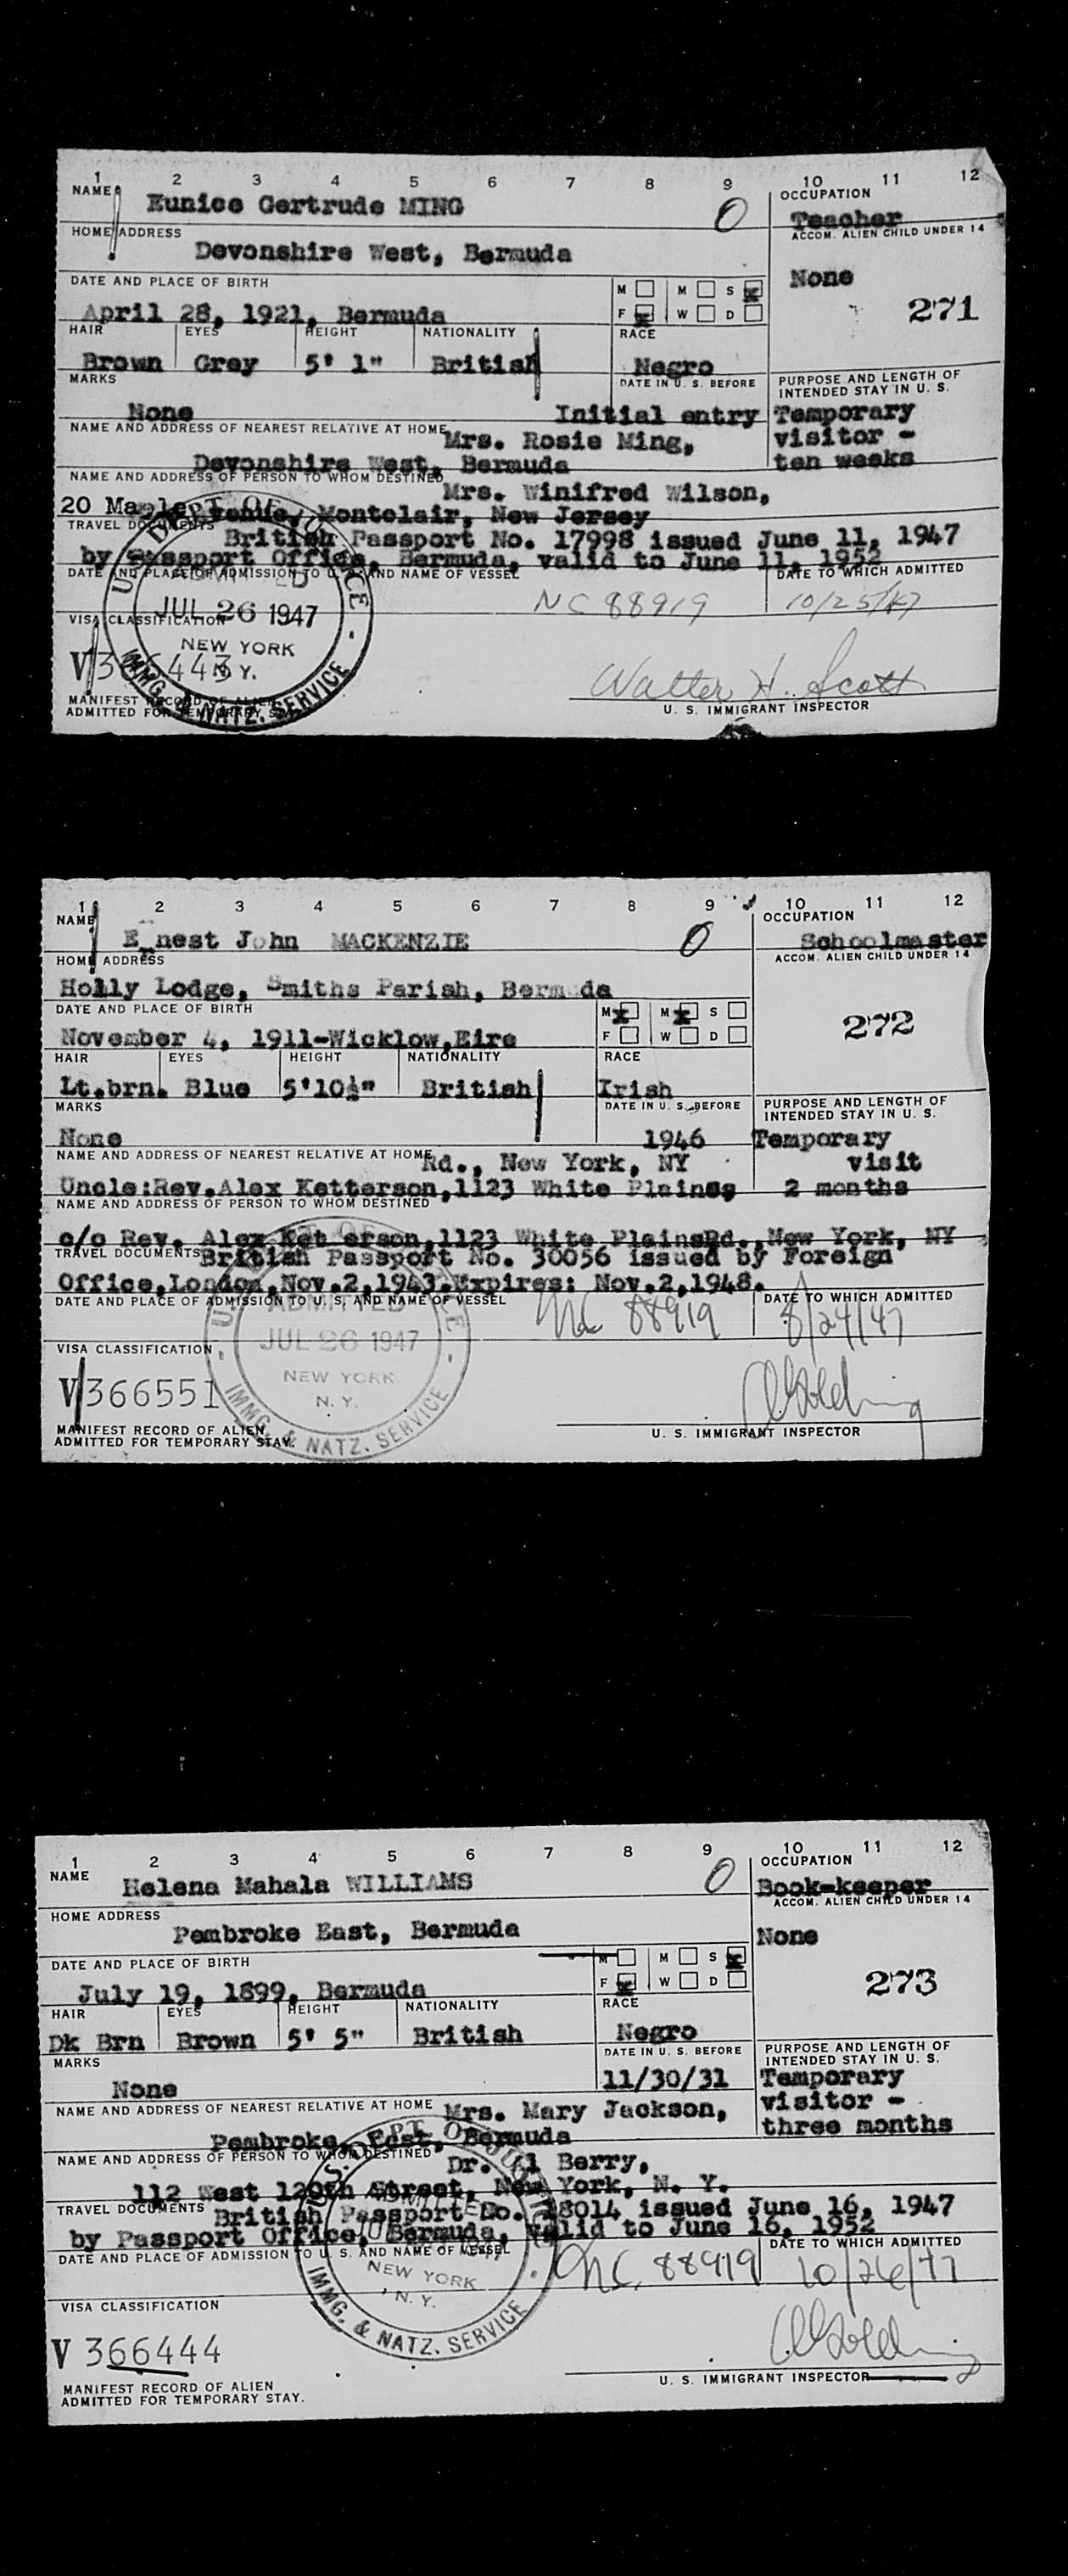 1 2 3 4 5 6 7 8 9 10 11 12
NAME OCCUPATION
Eunice Gertrude MING O Teacher
HOME ADDRESS ACCOM. ALIEN CHILD UNDER 14
Devonshire West, Bermuda None
DATE AND PLACE OF BIRTH M M S
April 28, 1921, Bermuda F W D 271
HAIR EYES HEIGHT NATIONALITY RACE
Brown Grey 5' 1" British Negro
MARKS DATE IN U. S. BEFORE PURPOSE AND LENGTH OF INTENDED STAY IN U. S.
None Initial entry Temporary
NAME AND ADDRESS OF NEAREST RELATIVE AT HOME Mrs. Rosie Ming, visitor -
Devonshire West, Bermuda ten weeks
NAME AND ADDRESS OF PERSON TO WHOM DESTINED Mrs. Winifred Wilson,
20 Maple Avenue, Montclair, New Jersey
TRAVEL DOCUMENTS British Passport No. 17998 issued June 11, 1947
by Passport Office, Bermuda, valid to June 11, 1952
DATE AND PLACE OF ADMISSION TO U. S. AND NAME OF VESSEL DATE TO WHICH ADMITTED
NC 88919 10/25/47
JUL 26 1947
VISA CLASSIFICATION
NEW YORK
N. Y.
IMMG. & NATZ. SERVICE
Walter H. Scott
MANIFEST RECORD OF ALIEN U. S. IMMIGRANT INSPECTOR
ADMITTED FOR TEMPORARY STAY.
1 2 3 4 5 6 7 8 9 10 11 12
NAME OCCUPATION
Ernest John MACKENZIE O Schoolmaster
HOME ADDRESS ACCOM. ALIEN CHILD UNDER 14
Holly Lodge, Smiths Parish, Bermuda
DATE AND PLACE OF BIRTH M M S
November 4, 1911-Wicklow,Eire F W D 272
HAIR EYES HEIGHT NATIONALITY RACE
Lt.brn. Blue 5'10½" British Irish
MARKS DATE IN U. S. BEFORE PURPOSE AND LENGTH OF INTENDED STAY IN U. S.
None 1946 Temporary
NAME AND ADDRESS OF NEAREST RELATIVE AT HOME Rd., New York, NY visit
Uncle:Rev.Alex Ketterson,1123 White Plains 2 months
NAME AND ADDRESS OF PERSON TO WHOM DESTINED
c/o Rev. Alex Ket erson,1123 White PlainsRd.,New York, NY
TRAVEL DOCUMENTS British Passport No. 30056 issued by Foreign
Office,London,Nov.2,1943.Expires: Nov.2,1948.
DATE AND PLACE OF ADMISSION TO U. S. AND NAME OF VESSEL DATE TO WHICH ADMITTED
ADMITTED NC 88919 8/24/47
JUL 26 1947
VISA CLASSIFICATION
NEW YORK
V 366551 N. Y.
IMMG. & NATZ. SERVICE
MANIFEST RECORD OF ALIEN U. S. IMMIGRANT INSPECTOR
ADMITTED FOR TEMPORARY STAY.
1 2 3 4 5 6 7 8 9 10 11 12
NAME OCCUPATION
Helena Mahala WILLIAMS O Book-keeper
HOME ADDRESS ACCOM. ALIEN CHILD UNDER 14
Pembroke East, Bermuda None
DATE AND PLACE OF BIRTH M M S
July 19, 1899, Bermuda F W D 273
HAIR EYES HEIGHT NATIONALITY RACE
Dk Brn Brown 5' 5" British Negro
MARKS DATE IN U. S. BEFORE PURPOSE AND LENGTH OF INTENDED STAY IN U. S.
None 11/30/31 Temporary
NAME AND ADDRESS OF NEAREST RELATIVE AT HOME Mrs. Mary Jackson, visitor -
Pembroke, East, Bermuda three months
NAME AND ADDRESS OF PERSON TO WHOM DESTINED Dr. Berry,
112 West 129th Street, New York, N. Y.
TRAVEL DOCUMENTS British Passport No. 18014 issued June 16, 1947
by Passport Office, Bermuda, valid to June 16, 1952
DATE AND PLACE OF ADMISSION TO U. S. AND NAME OF VESSEL DATE TO WHICH ADMITTED
NC 88919 10/26/47
NEW YORK
N. Y.
VISA CLASSIFICATION
IMMG. & NATZ. SERVICE
V 366444
MANIFEST RECORD OF ALIEN U. S. IMMIGRANT INSPECTOR
ADMITTED FOR TEMPORARY STAY.